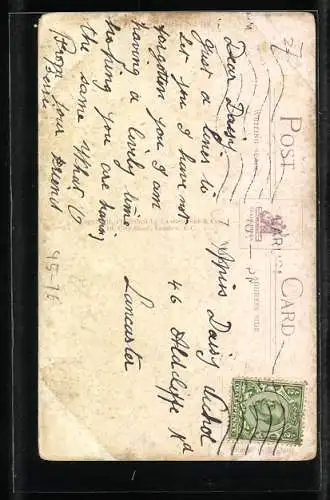 27
POST CARD
WRITING SPACE
ADDRESS SIDE
Dear Daisy
Just a lines to
Let you I have not
forgotten you I am
having a lively time
hoping you are having
the same What O
From your friend
Bertie
Miss Daisy
46 Aldcliffe Rd
Lancaster
45-16